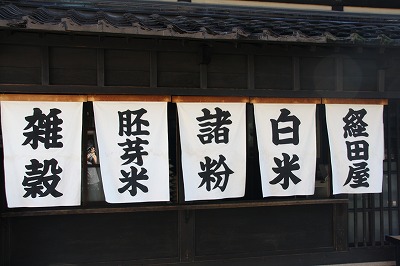 経田屋
白米
諸粉
胚芽米
雑穀